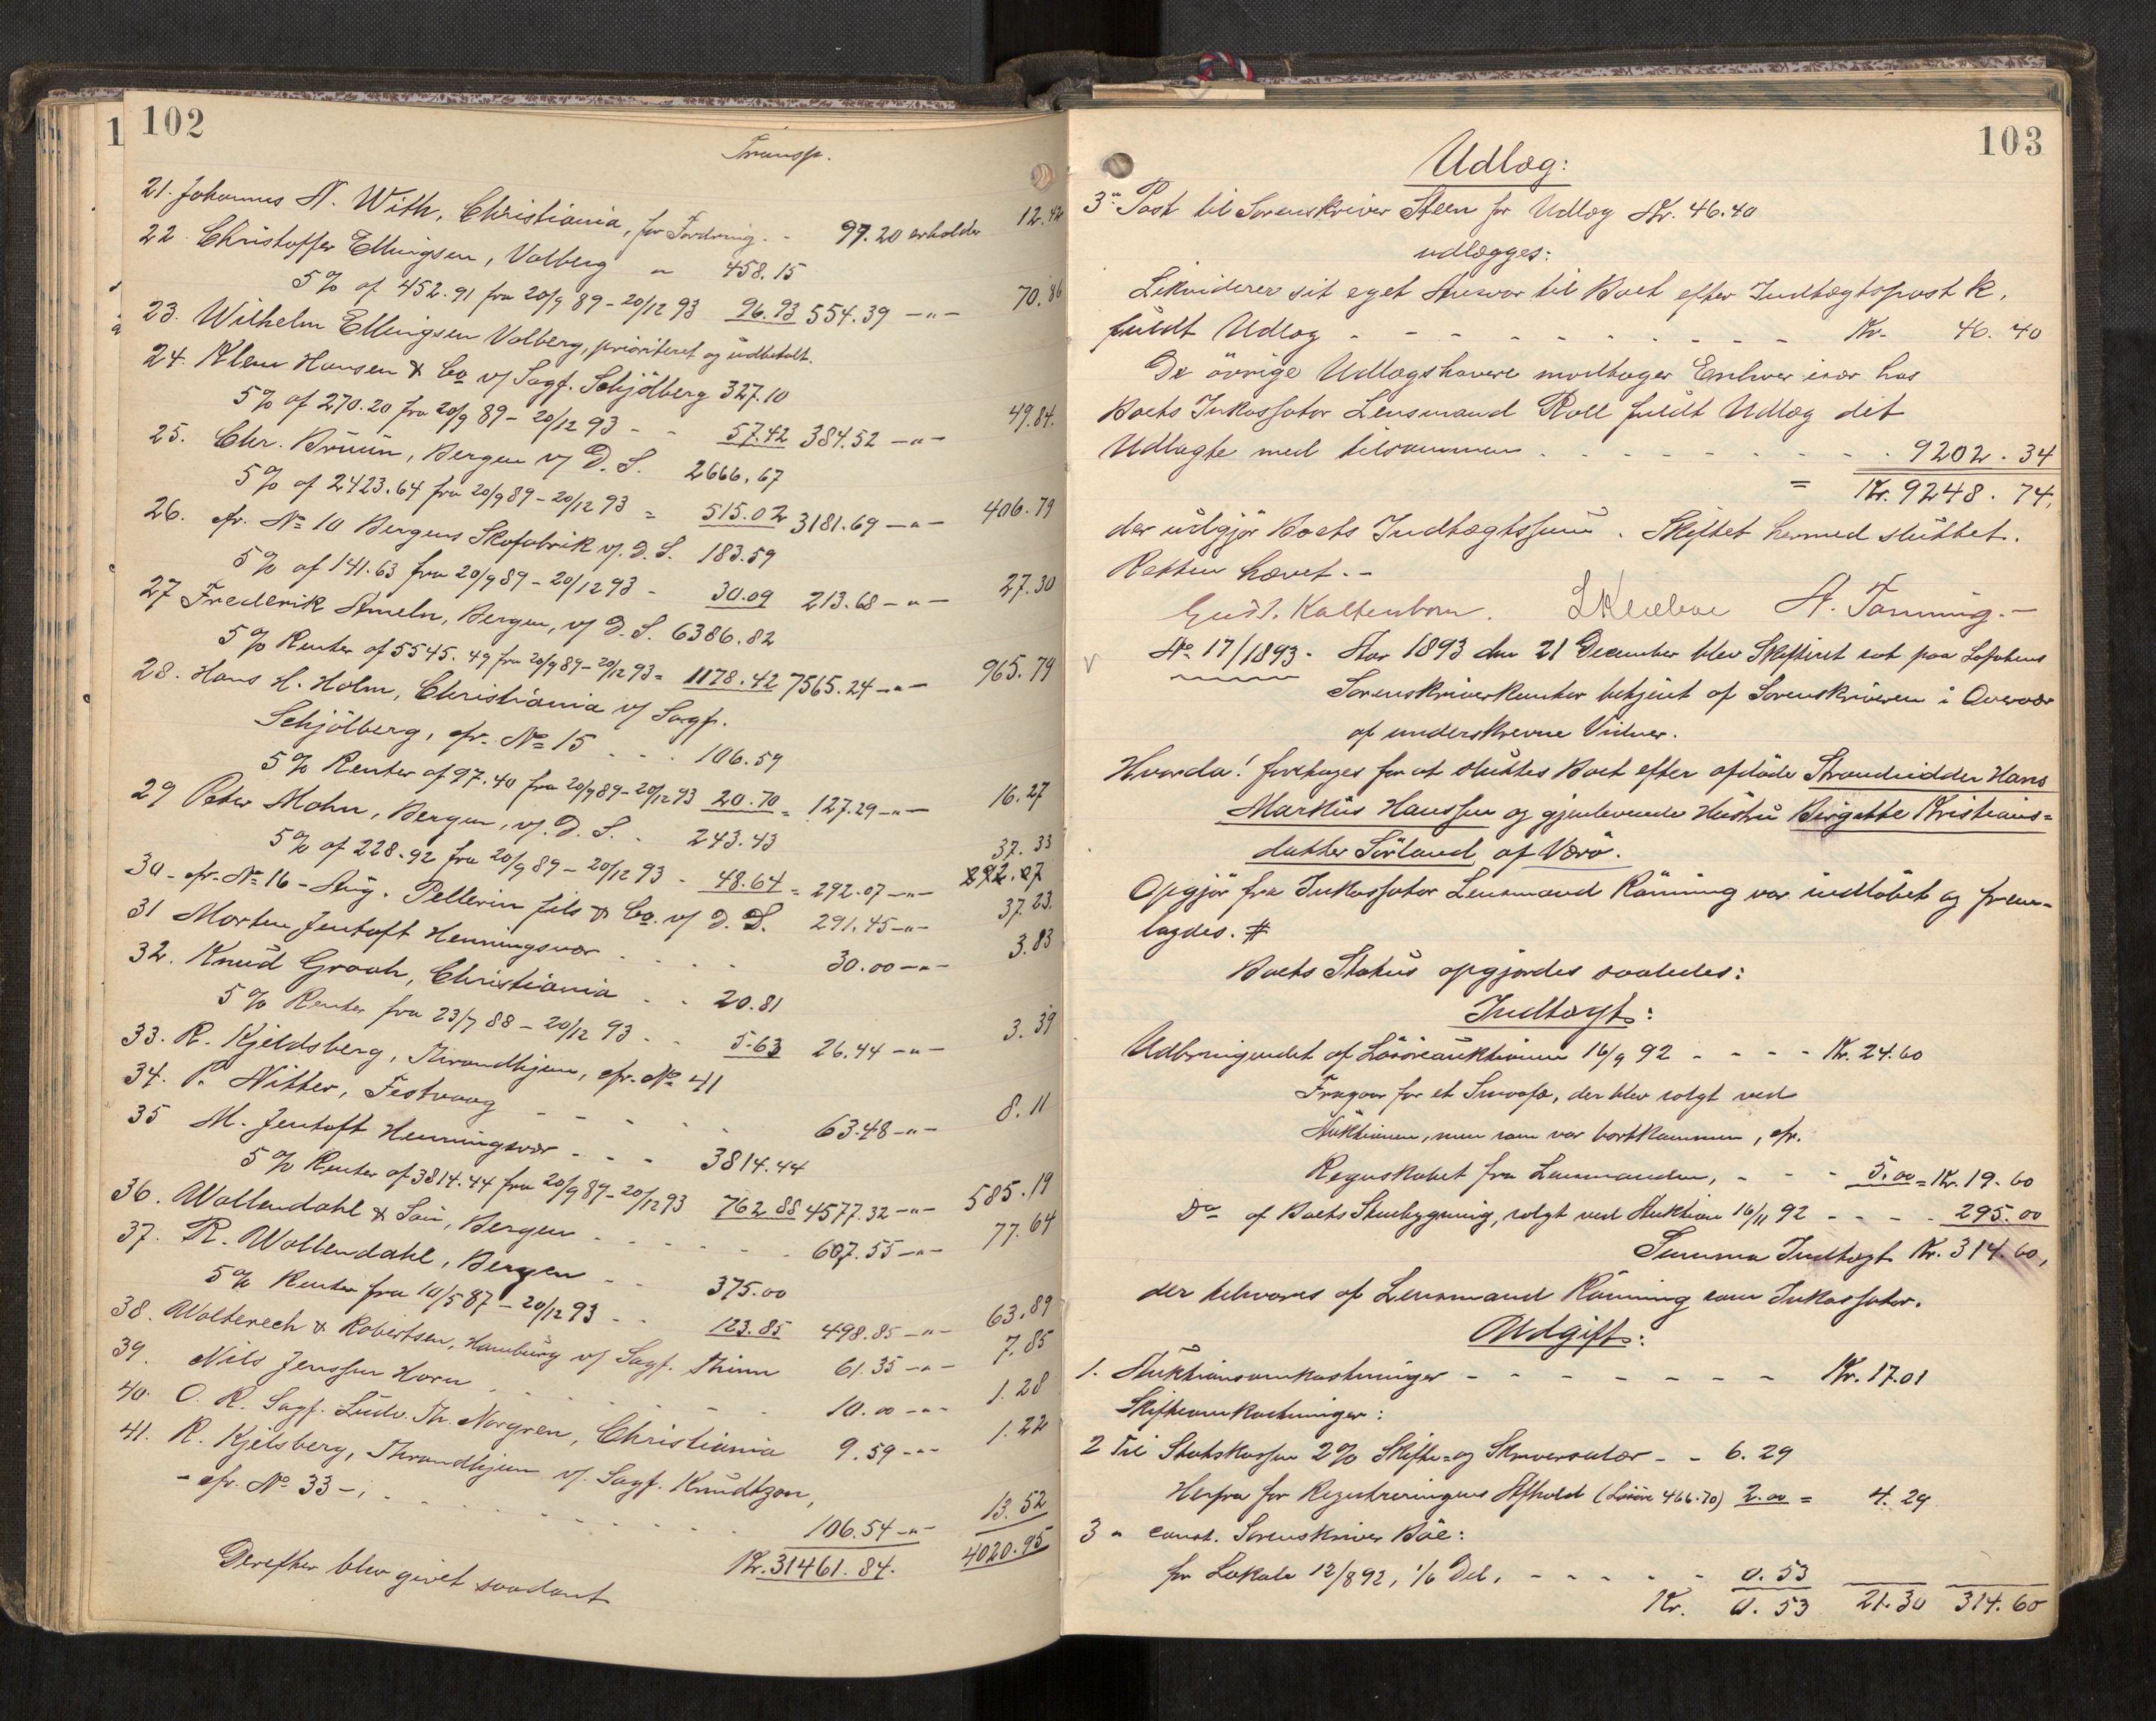 102
Transp.
21. Johannes N. With, Christiania, for Fordring - 97.20 erholder 12.42
22. Christoffer Ellingsen, Valberg " 458.15
5% af 452.91 fra 20/9 89 - 20/12 93 96.93 554.39 -"- 70.86
23. Wilhelm Ellingsen Valberg, prioriteret og udbetalt.
24. Klem Hansen & Co v/ Sagf. Schjölberg 327.10
5% af 270.20 fra 20/9 89 - 20/12 93 - - 57.42 384.52 -"- 49.84.
25. Chr. Bruun, Bergen v/ D. S. 2666.67
5% af 2423.64 fra 20/9 89 - 20/12 93 = 515.02 3181.69 -"- 406.79
26. cfr. No 10 Bergens Skofabrik v/. D. S. 183.59
5% af 141.63 fra 20/9 89 - 20/12 93 - 30.09 213.68 -"- 27.30
27 Frederik Ameln, Bergen, v/ D. S. 6386.82
5% Renter af 5545.49 fra 20/9 89 - 20/12 93 = 1178.42 7565.24 -"- 965.79
28. Hans H. Holm, Christiania v/ Sagf.
Schjölberg, cfr. No 15 - - - 106.59
5% Renter af 97.40 fra 20/9 89 - 20/12 93 20.70 = 127.29 -"- 16.27
29 Peter Mohn, Bergen, v/. D. S. - 243.43
5% af 228.92 fra 20/9 89 - 20/12 93 - 48.64 = 292.07 -"- 37.33
292.07
30 - cfr. No 16 - Aug. Pellerin fils & Co. v/ D. S. 291.45 -"- 37.23.
31 Morten Jentoft Henningsvær - - - - 30.00 -"- 3.83
32. Knud Graah, Christiania - - 20.81
5% Renter fra 23/7 88 - 20/12 93 - - 5.63 26.44 -"- 3.39
33. R. Kjeldsberg, Throndhjem, cfr. No 41
34. P. Nitter, Festvaag - - - - - 63.48 -"- 8.11
35 M. Jentoft Henningsvær - - - 3814.44
5% Renter af 3814.44 fra 20/9 89 - 20/12 93 762.88 4577.32 -"- 585.19
36. Wallendahl & Søn, Bergen - - - - 607.55 -"- 77.64
37. R. Wallendahl, Bergen - - 375.00
5% Renter fra 10/5 87 - 20/12 93 - - 123.85 498.85 -"- 63.89
38. Wolterech & Robertsen, Hamburg v/ Sagf. Thinn 61.35 -"- 7.85
39. Nils Jenssen Horn - - - - 10.00 -"- 1.28
40. O. R. Sagf. Ludv. Th. Norgren, Christiania 9.59 -"- 1.22
41. R. Kjelsberg, Throndhjem v/. Sagf. Knudtzon,
- cfr. No 33 - - - - - - 106.54 -"- 13.52
Kr. 31461.84. 4020.95
Derefter blev givet saadant
103
Udlæg:
3" Post til Sorenskriver Steen for Udlæg Kr. 46.40
udlægges:
Likviderer sit eget Ansvar til Boet efter Indtægtspost k,
fuldt Udlæg - - - - - - - - Kr. 46.40
De övrige Udlægshavere modtager Enhver især hos
Boets Inkassator Lensmand Roll fuldt Udlæg det
Udlagte med tilsammen - - - - - - 9202.34
= Kr. 9248.74,
der udgjör Boets Indtægtssum. Skiftet hermed sluttet.
Retten hævet. -
Gust. Kaltenborn. A. Tanning. -
v No 17/1893. Aar 1893 den 21 December blev Skifteret sat paa Lofotens
Sorenskriverkontor betjent af Sorenskriveren i Overvær
af underskrevne Vidner.
Hvorda! foretages for at sluttes Boet efter afdöde Strandsidder Hans
Markus Hanssen og gjenlevende Hustru Birgitte Kristians=
datter Sörland af Værö.
Opgjör fra Inkassator Lensmand Rönning var indlöbet og frem-
lagdes. #
Boets Status opgjordes saaledes:
Indtægt:
Udbringendet af Lösöreauktionen 16/9 92 - - - - Kr. 24.60
Fragaar for et Snørefæ, der blev solgt ved
Auktionen, men som var bortkommen, cfr.
Regnskabet fra Lensmanden, - - - 5.00 = Kr. 19.60
Do af Boets Stuebygning, solgt ved Auktion 16/11 92 - - - 295.00
Summa Indtægt Kr. 314.60,
der tilsvares af Lensmand Rönning som Inkassator.
Udgift:
1. Auktionsomkostninger - - - - - - - Kr. 17.01
Skifteomkostninger:
2 Til Statskassen 2% Skifte- og Skriversalær - - 6.29
Herfra for Registreringens Afhold (Lösöre 466.70) 2.00 = 4.29
3 " const. Sorenskriver Böe:
for Lokale 12/8 92, 1/6 Del, - - - - - 0.53
Kr. 0.53 21.30 314.60